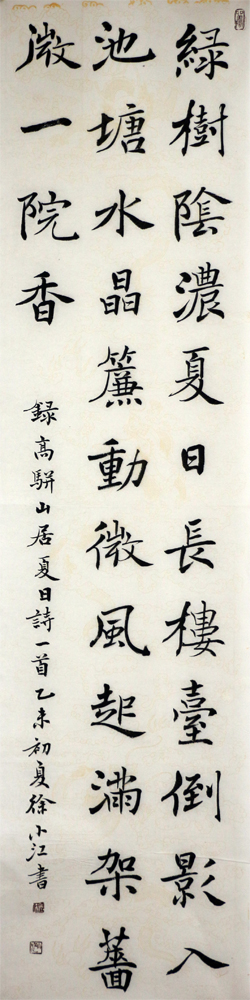 緑樹隂濃夏日長樓臺倒影入
池塘水晶簾動微風起滿架薔
微一院香
録高駢山居夏日詩一首乙未初夏徐小江書